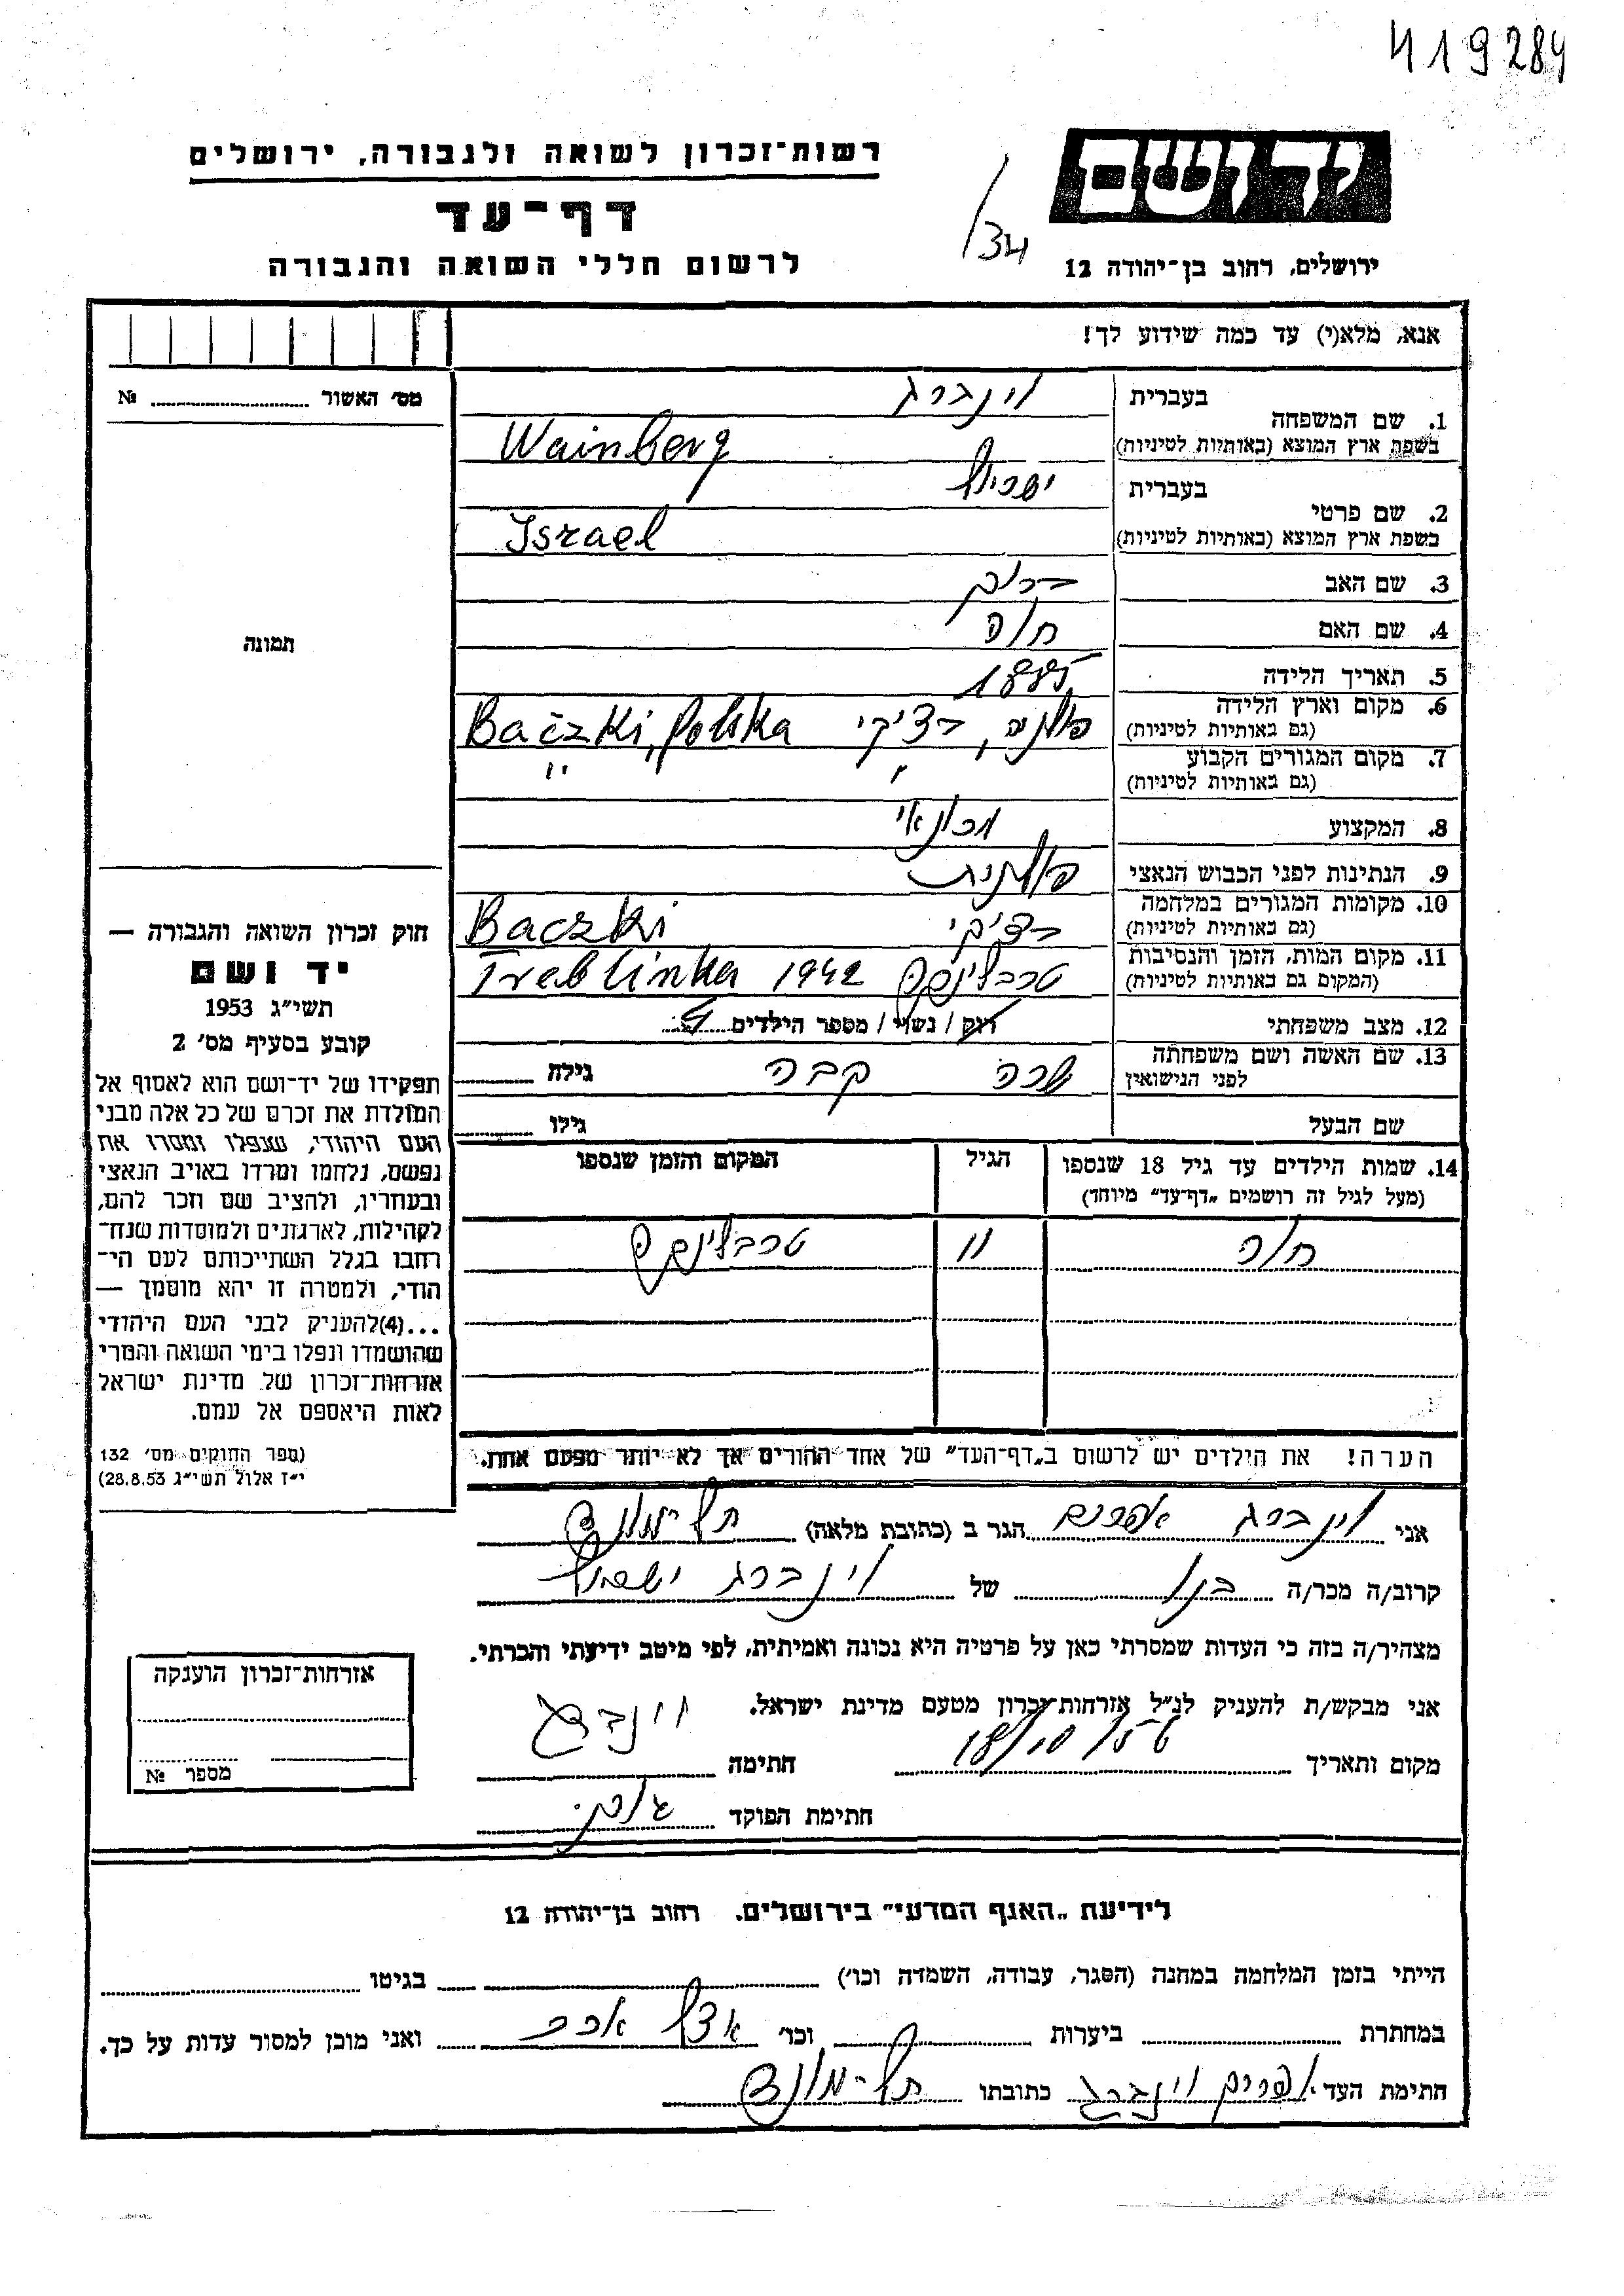 419284
יד ושם
רשות־זכרון לשואה ולגבורה, ירושלים
דף־עד
לרשום חללי השואה והגבורה
/34
ירושלים, רחוב בן־יהודה 12
אנא, מלא(י) עד כמה שידוע לך!
מס׳ האשור № 
1. שם המשפחה בעברית וינברג
בשפת ארץ המוצא (באותיות לטיניות) Wainberg
2. שם פרטי בעברית ישראל
בשפת ארץ המוצא (באותיות לטיניות) Israel
3. שם האב
4. שם האם חוה
5. תאריך הלידה 1885
6. מקום וארץ הלידה (גם באותיות לטיניות) פולניה, בצ׳קי Bačzki, Polska
7. מקום המגורים הקבוע (גם באותיות לטיניות) " "
8. המקצוע
9. הנתינות לפני הכבוש הנאצי פולנית
10. מקומות המגורים במלחמה (גם באותיות לטיניות) בצ׳קי Baczki
11. מקום המות, הזמן והנסיבות (המקום גם באותיות לטיניות) טרבלינקה Treblinka 1942
12. מצב משפחתי רוק / נשוי / מספר הילדים
13. שם האשה ושם משפחתה לפני הנישואין שרה קבה גילה
שם הבעל גילו
14. שמות הילדים עד גיל 18 שנספו (מעל לגיל זה רושמים „דף־עד״ מיוחד) הגיל המקום והזמן שנספו
חוה 11 טרבלינקה
תמונה
חוק זכרון השואה והגבורה —
יד ושם
תשי״ג 1953
קובע בסעיף מס׳ 2
תפקידו של יד־ושם הוא לאסוף אל
המולדת את זכרם של כל אלה מבני
העם היהודי, שנפלו ומסרו את
נפשם, נלחמו ומרדו באויב הנאצי
ובעוזריו, ולהציב שם וזכר להם,
לקהילות, לארגונים ולמוסדות שנח־
רבו בגלל השתייכותם לעם הי־
הודי, ולמטרה זו יהא מוסמך —
...(4)להעניק לבני העם היהודי
שהושמדו ונפלו בימי השואה והמרי
אזרחות־זכרון של מדינת ישראל
לאות היאספם אל עמם.
(ספר החוקים מס׳ 132
י״ז אלול תשי״ג 28.8.53)
הערה! את הילדים יש לרשום ב„דף־העד״ של אחד ההורים אך לא יותר מפעם אחת.
אני וינברג אפרים הגר ב (כתובת מלאה) תל־מונד
קרוב/ה מכר/ה בנו של וינברג ישראל
מצהיר/ה בזה כי העדות שמסרתי כאן על פרטיה היא נכונה ואמיתית, לפי מיטב ידיעתי והכרתי.
אני מבקש/ת להעניק לנ״ל אזרחות־זכרון מטעם מדינת ישראל.
מקום ותאריך חתימה
חתימת הפוקד
אזרחות־זכרון הוענקה
מספר №
לידיעת „האגף המדעי״ בירושלים. רחוב בן־יהודה 12
הייתי בזמן המלחמה במחנה (הסגר, עבודה, השמדה וכו׳) בגיטו
במחתרת ביערות וכו׳ ואני מוכן למסור עדות על כך.
חתימת העד אפרים וינברג כתובתו תל־מונד